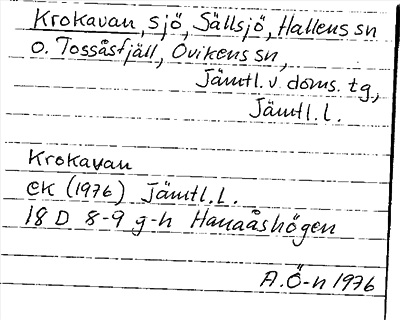 Krokavan, sjö, Sällsjö, Hallens sn
o. Tossåsfjäll, Ovikens sn,
Jämtl. v. doms. tg,
Jämtl. l.
Krokavan
ek (1976) Jämtl. l.
18 D 8-9 g-h Hanaåshögen
A.Ö-n 1976